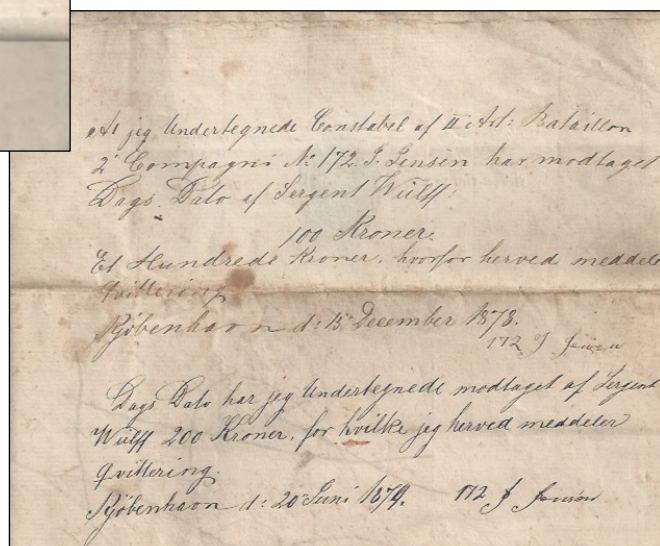 At jeg Undertegnede Constabel af II Art: Bataillon
2' Compagni No: 172. J. Jensen har modtaget
Dags. Dato af Sergent Wülff:
100 Kroner.
Et Hundrede Kroner, hvorfor herved meddele
Qvittering
Kjöbenhavn d: 15' December 1878.
172 J Jensen
Dags Dato har jeg Undertegnede modtaget af Sergent
Wülff 200 Kroner, for hvilke jeg herved meddeler
Qvittering.
Kjöbenhavn d: 20' Juni 1879. 172 J Jensen